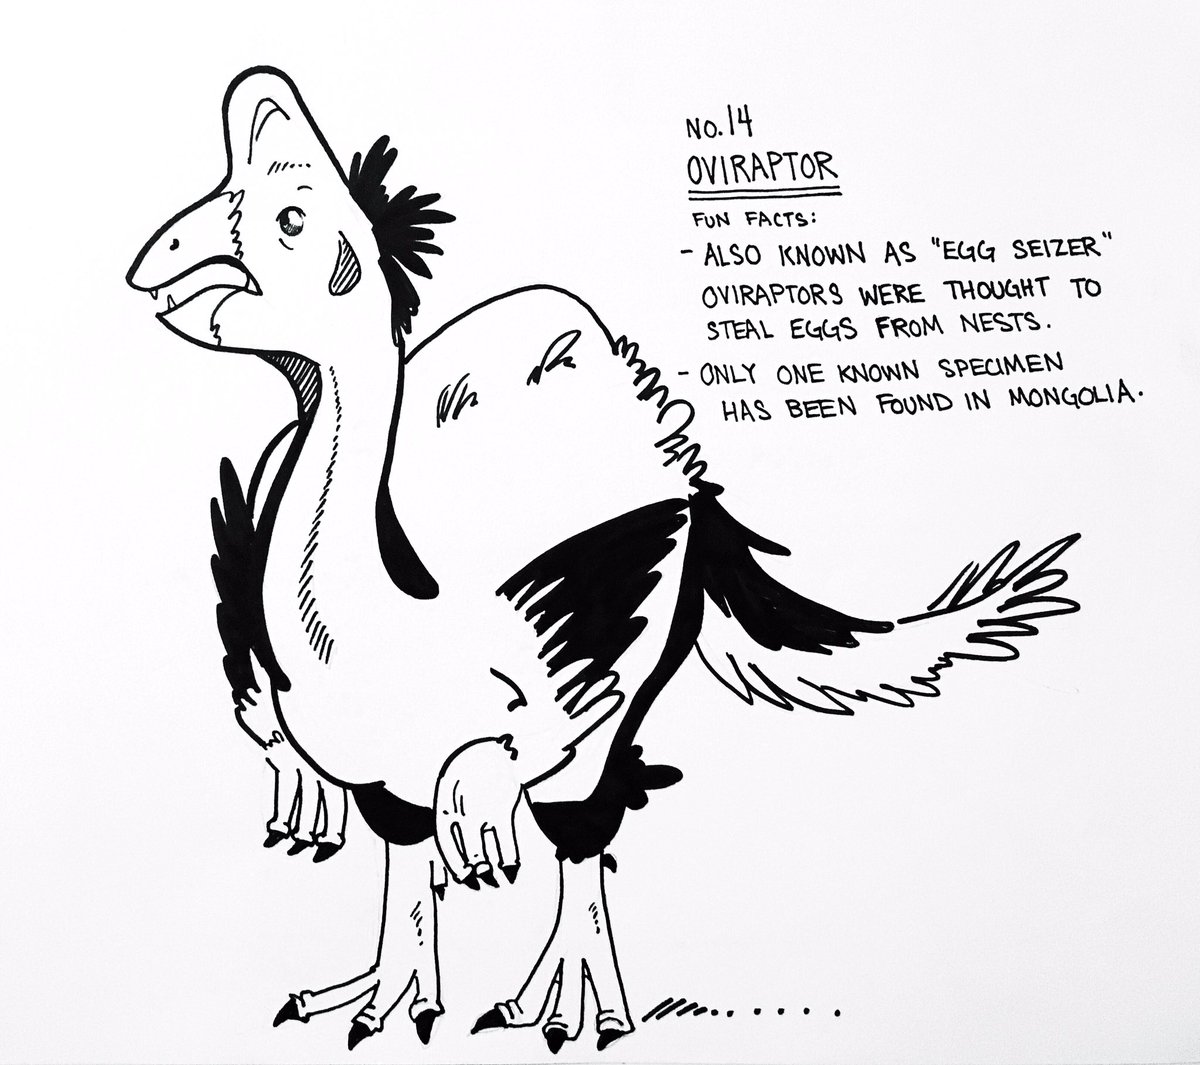 NO. 14
OVIRAPTOR
FUN FACTS:
- ALSO KNOWN AS "EGG SEIZER"
OVIRAPTORS WERE THOUGHT TO
STEAL EGGS FROM NESTS.
- ONLY ONE KNOWN SPECIMEN
HAS BEEN FOUND IN MONGOLIA.